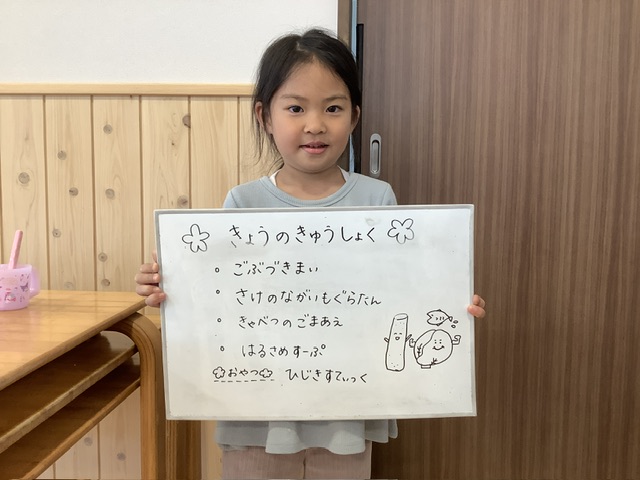 きょうのきゅうしょく
・ごぶづきまい
・さけのながいもぐらたん
・きゃべつのごまあえ
・はるさめすーぷ
おやつ ひじきすてぃっく